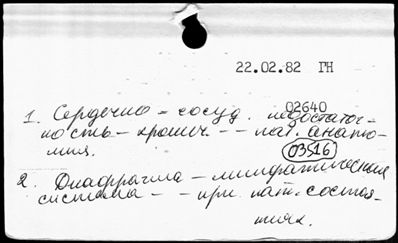 22.02.82 ГН
02640
1. Сердечно-сосуд. недостаточ-
ность - хронич. -- пат. анато-
мия.
03516
2. Диафрагма - лимфатическая
система -- при пат. состоя-
ниях.